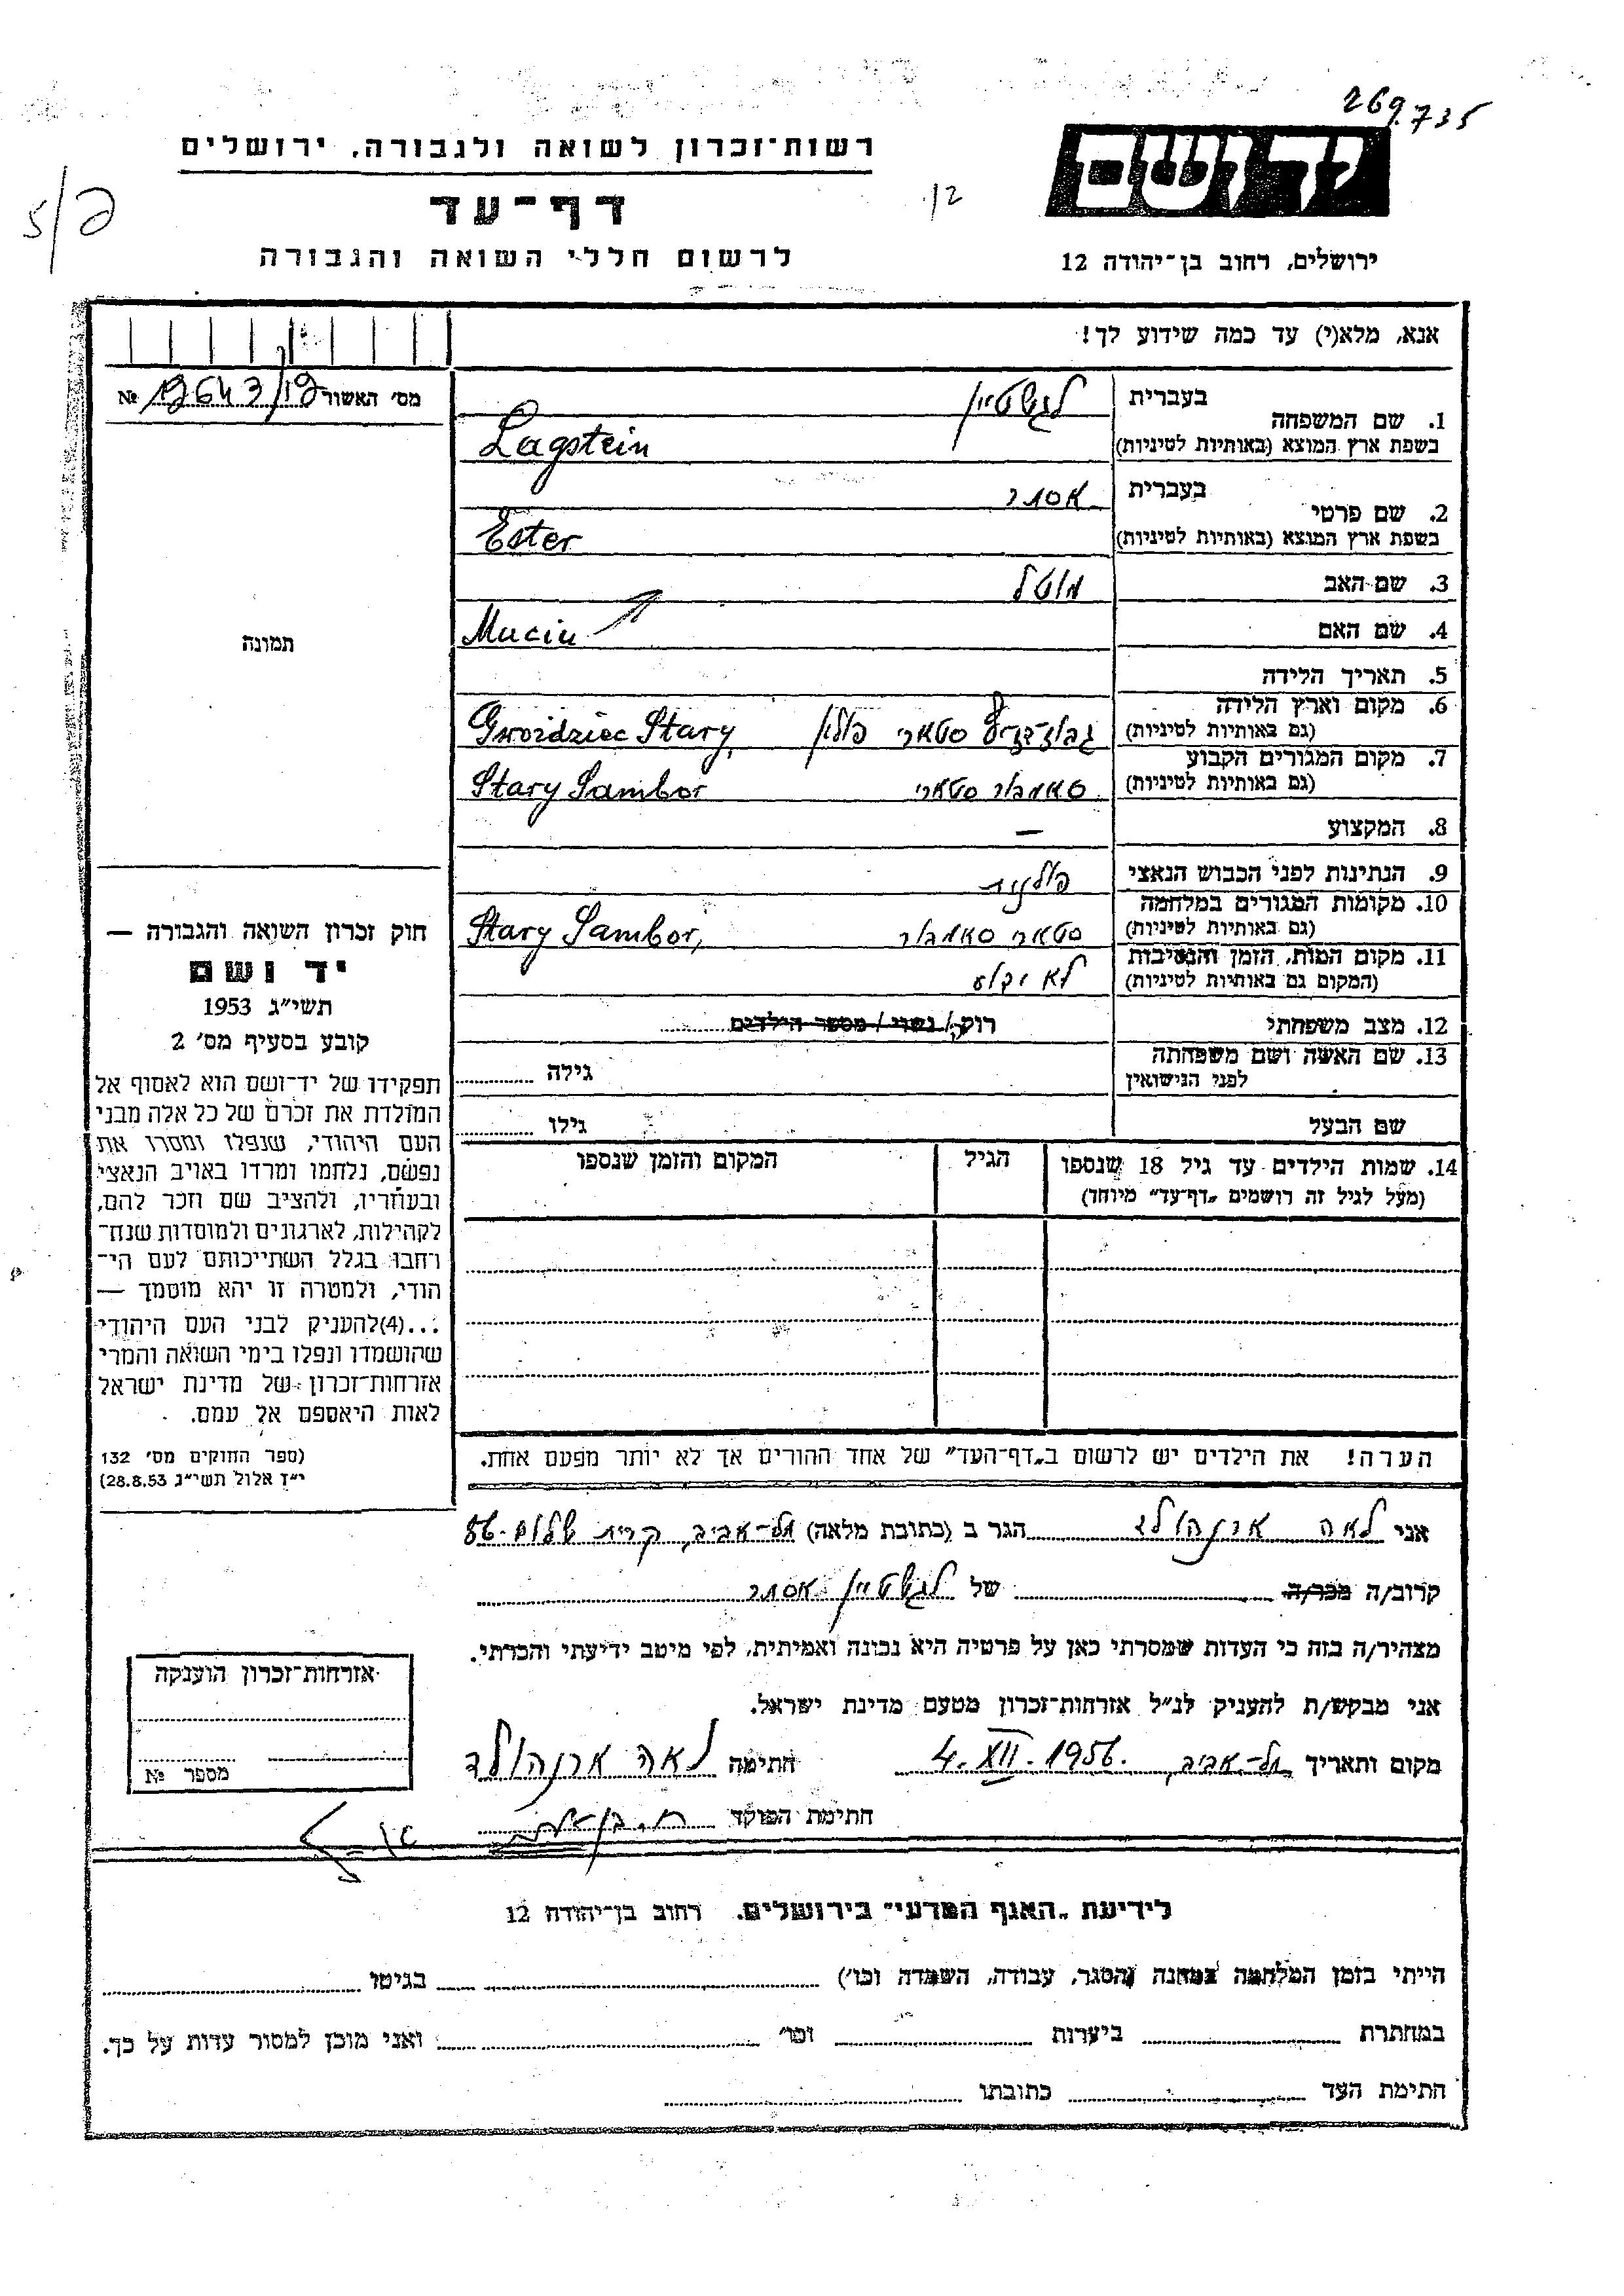 269.735
יד ושם
רשות־זכרון לשואה ולגבורה, ירושלים
דף־עד
לרשום חללי השואה והגבורה
ירושלים, רחוב בן־יהודה 12
אנא, מלא(י) עד כמה שידוע לך!
מס׳ האשור № 12643/19
1. שם המשפחה
בעברית לגשטיין
בשפת ארץ המוצא (באותיות לטיניות) Lagstein
2. שם פרטי
בעברית אסתר
בשפת ארץ המוצא (באותיות לטיניות) Ester
3. שם האב מוטל
4. שם האם Muciu
5. תאריך הלידה
6. מקום וארץ הלידה
(גם באותיות לטיניות) סטארי פולין Gwoidziec Stary,
7. מקום המגורים הקבוע
(גם באותיות לטיניות) סאמבור סטארי Stary Sambor
8. המקצוע —
9. הנתינות לפני הכבוש הנאצי פולנית
10. מקומות המגורים במלחמה
(גם באותיות לטיניות) סטארי סאמבור Stary Sambor,
11. מקום המות, הזמן והנסיבות
(המקום גם באותיות לטיניות) לא ידוע
12. מצב משפחתי רוק/ה / נשוי / מספר הילדים
13. שם האשה ושם משפחתה
לפני הנישואין גילה
שם הבעל גילו
14. שמות הילדים עד גיל 18 שנספו הגיל המקום והזמן שנספו
(מעל לגיל זה רושמים „דף־עד״ מיוחד)
הערה! את הילדים יש לרשום ב„דף־העד״ של אחד ההורים אך לא יותר מפעם אחת.
תמונה
חוק זכרון השואה והגבורה —
יד ושם
תשי״ג 1953
קובע בסעיף מס׳ 2
תפקידו של יד־ושם הוא לאסוף אל
המולדת את זכרם של כל אלה מבני
העם היהודי, שנפלו ומסרו את
נפשם, נלחמו ומרדו באויב הנאצי
ובעוזריו, ולהציב שם וזכר להם,
לקהילות, לארגונים ולמוסדות שנח־
רבו בגלל השתייכותם לעם הי־
הודי, ולמטרה זו יהא מוסמך —
...(4)להעניק לבני העם היהודי
שהושמדו ונפלו בימי השואה והמרי
אזרחות־זכרון של מדינת ישראל
לאות היאספם אל עמם.
(ספר החוקים מס׳ 132
י״ז אלול תשי״ג 28.8.53)
אני לאה ארנהולד הגר ב (כתובת מלאה) תל־אביב, קרית שלום 86
קרוב/ה מכר/ה של לגשטיין אסתר
מצהיר/ה בזה כי העדות שמסרתי כאן על פרטיה היא נכונה ואמיתית, לפי מיטב ידיעתי והכרתי.
אני מבקש/ת להעניק לנ״ל אזרחות־זכרון מטעם מדינת ישראל.
מקום ותאריך תל־אביב, 4.XII.1956. חתימה לאה ארנהולד
חתימת הפוקד
אזרחות־זכרון הוענקה
מספר №
לידיעת „האגף המדעי״ בירושלים, רחוב בן־יהודה 12
הייתי בזמן המלחמה במחנה (הסגר, עבודה, השמדה וכו׳) בגיטו
במחתרת ביערות וכו׳ ואני מוכן למסור עדות על כך.
חתימת העד כתובתו